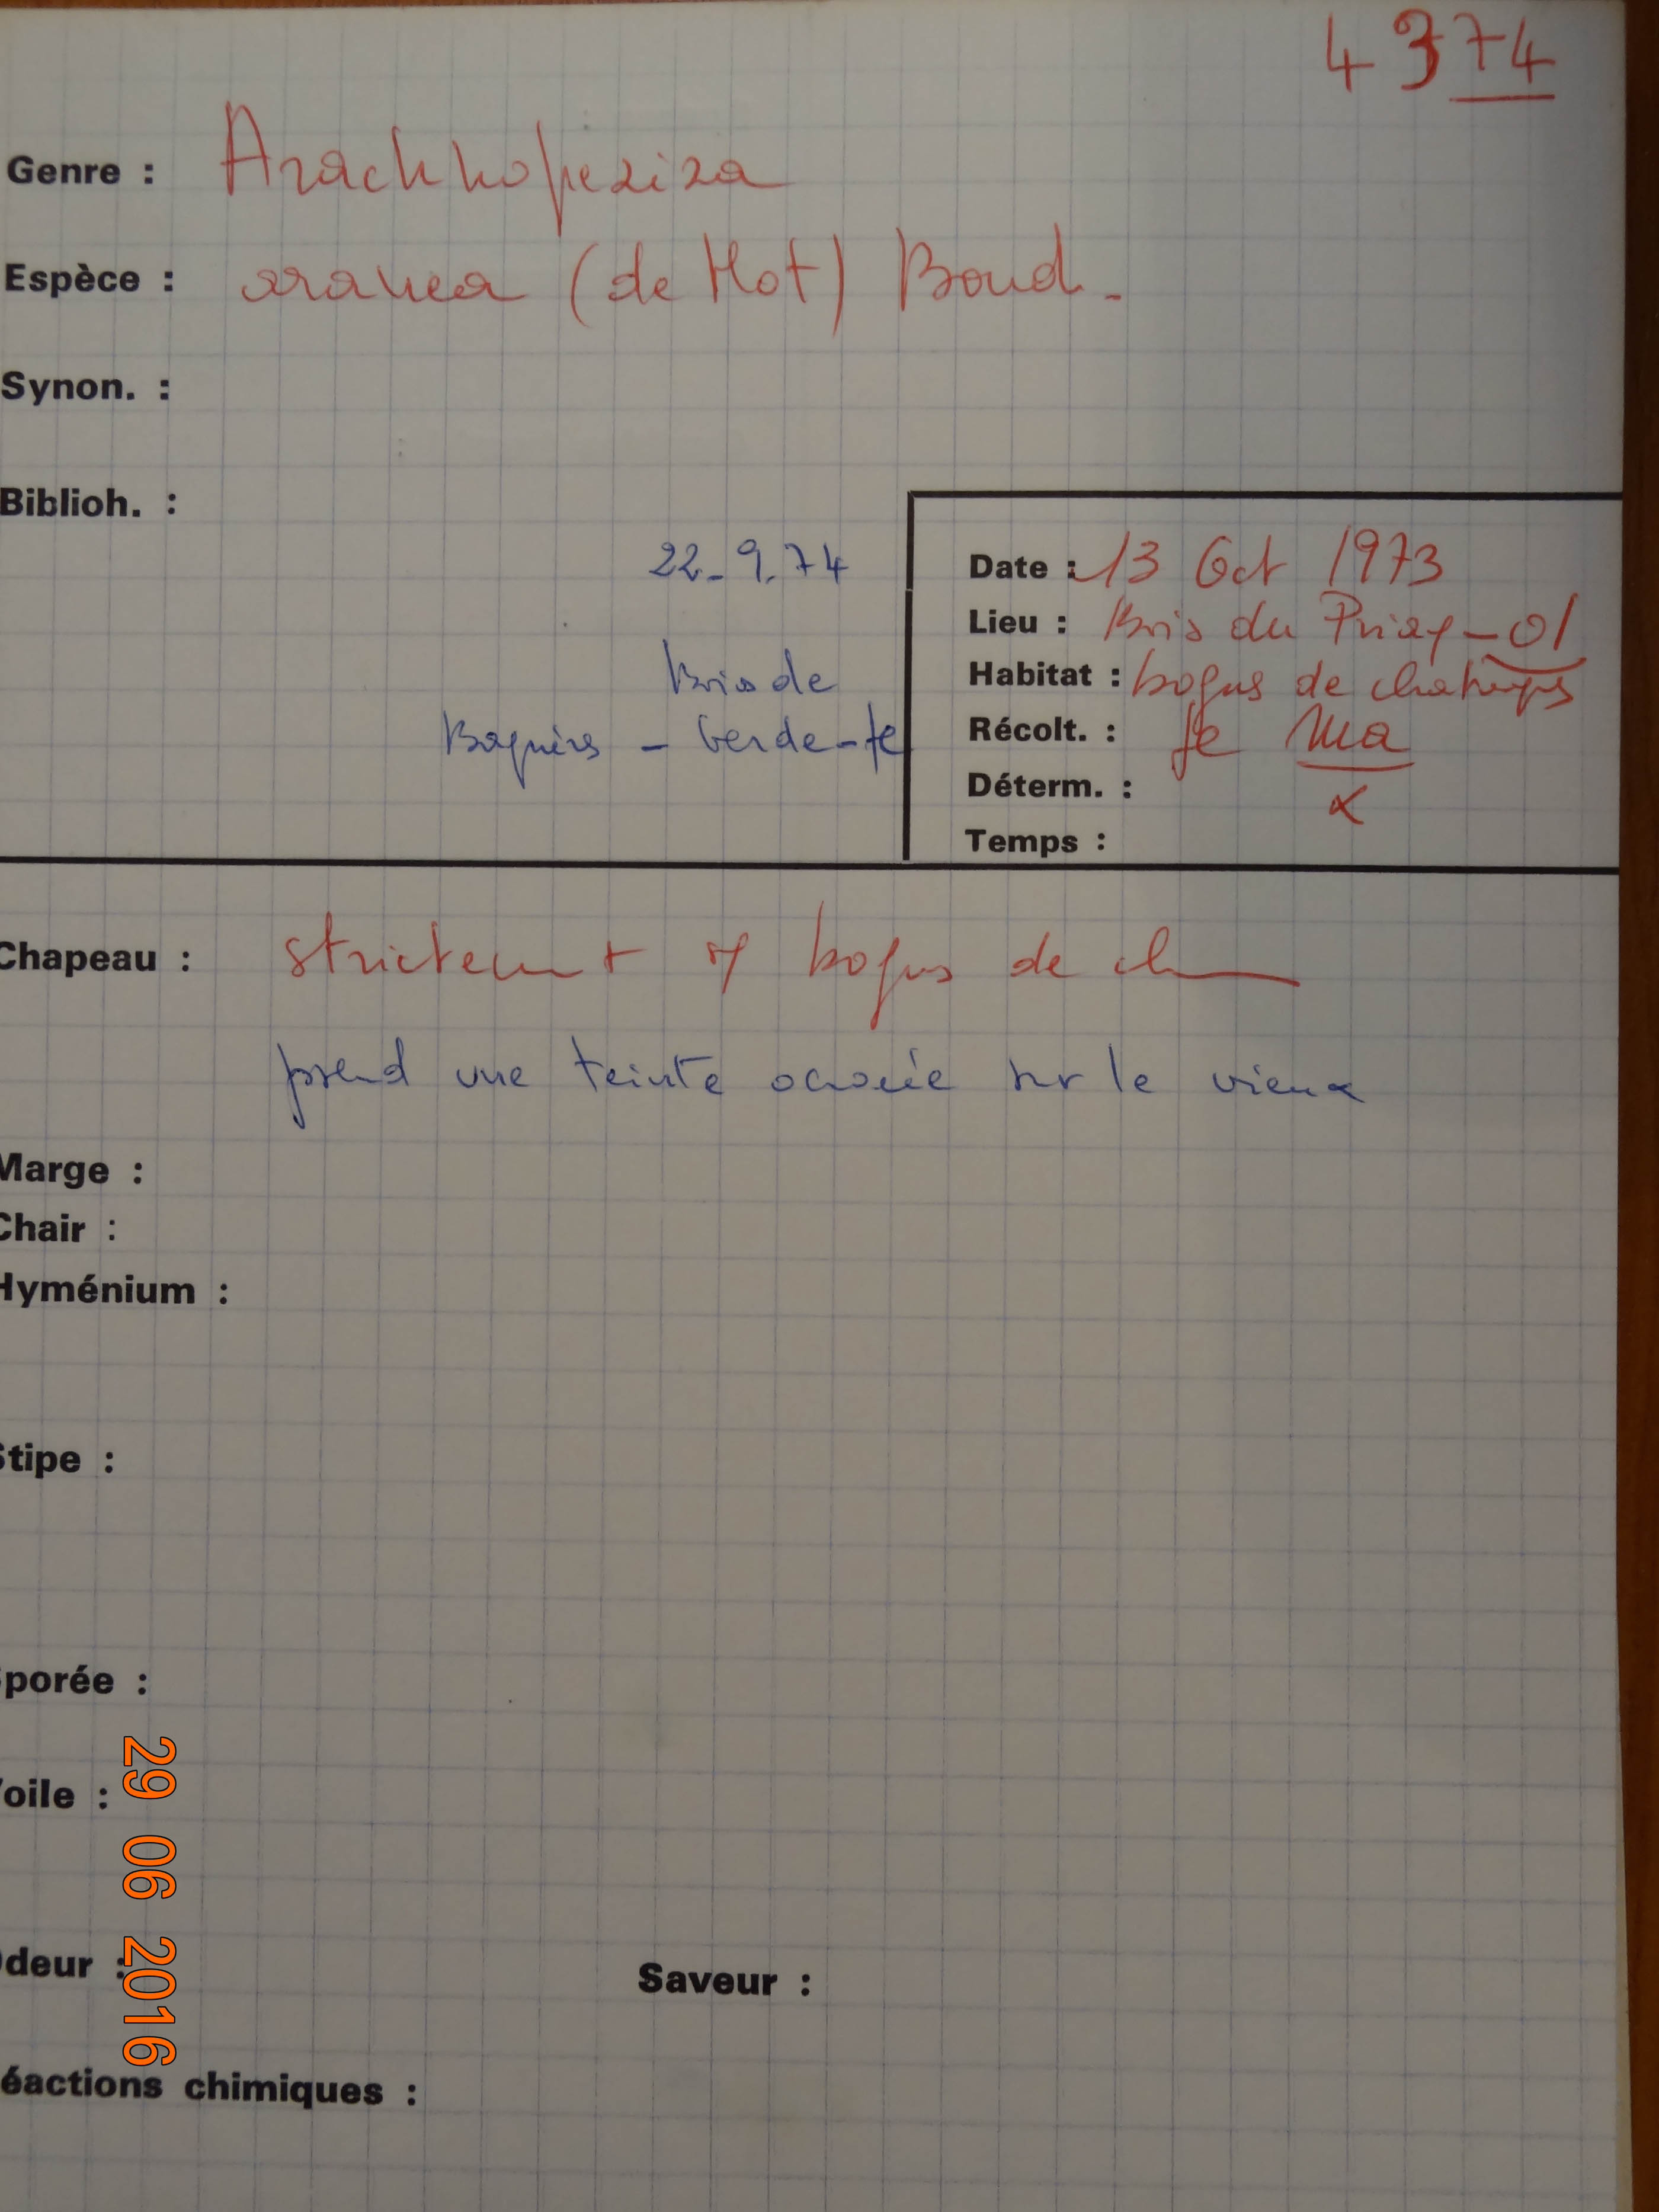 4374
Genre : Arachnopeziza
Espèce : aranea (de Not) Boud.
Synon. :
Biblioh. :
22_9.74
Bois de
Date : 13 Oct 1973
Lieu : Bois du Priay - 01
Habitat : bogues de chataignes
Récolt. :
Déterm. :
Temps :
Chapeau : strictem t bogues de ch
prend une teinte ocracée sur le vieux
Marge :
Chair :
Hyménium :
Stipe :
Sporée :
Voile :
Odeur : Saveur :
éactions chimiques :
29 06 2016